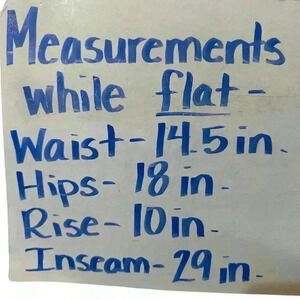 Measurements
while flat-
Waist- 14.5 in.
Hips- 18 in.
Rise- 10 in.
Inseam- 29 in.